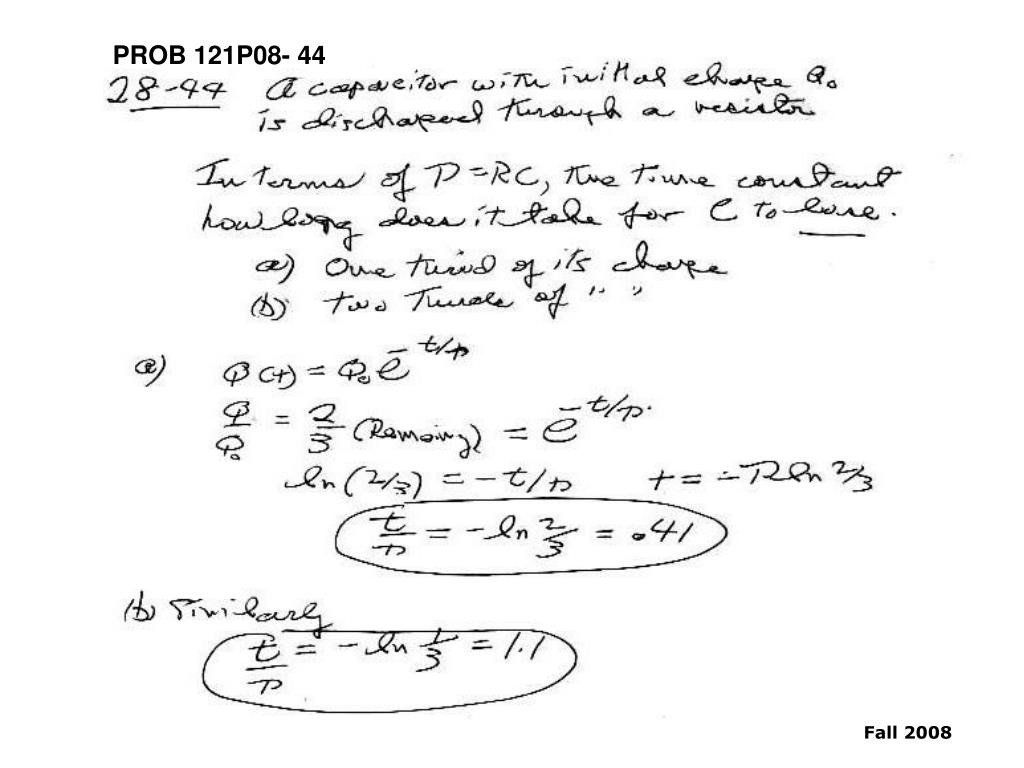 PROB 121P08- 44
28-44 A capacitor with initial charge Q₀
is discharged through a resistor
In terms of τ = RC, the time constant
how long does it take for C to lose.
a) One third of its charge
(b) two thirds of " "
a) Q(t) = Q₀ e^(-t/τ)
Q/Q₀ = 2/3 (Remaing) = e^(-t/τ).
ln (2/3) = -t/τ t = -τ ln 2/3
t/τ = -ln 2/3 = .41
(b) Similarly
t/τ = -ln 1/3 = 1.1
Fall 2008